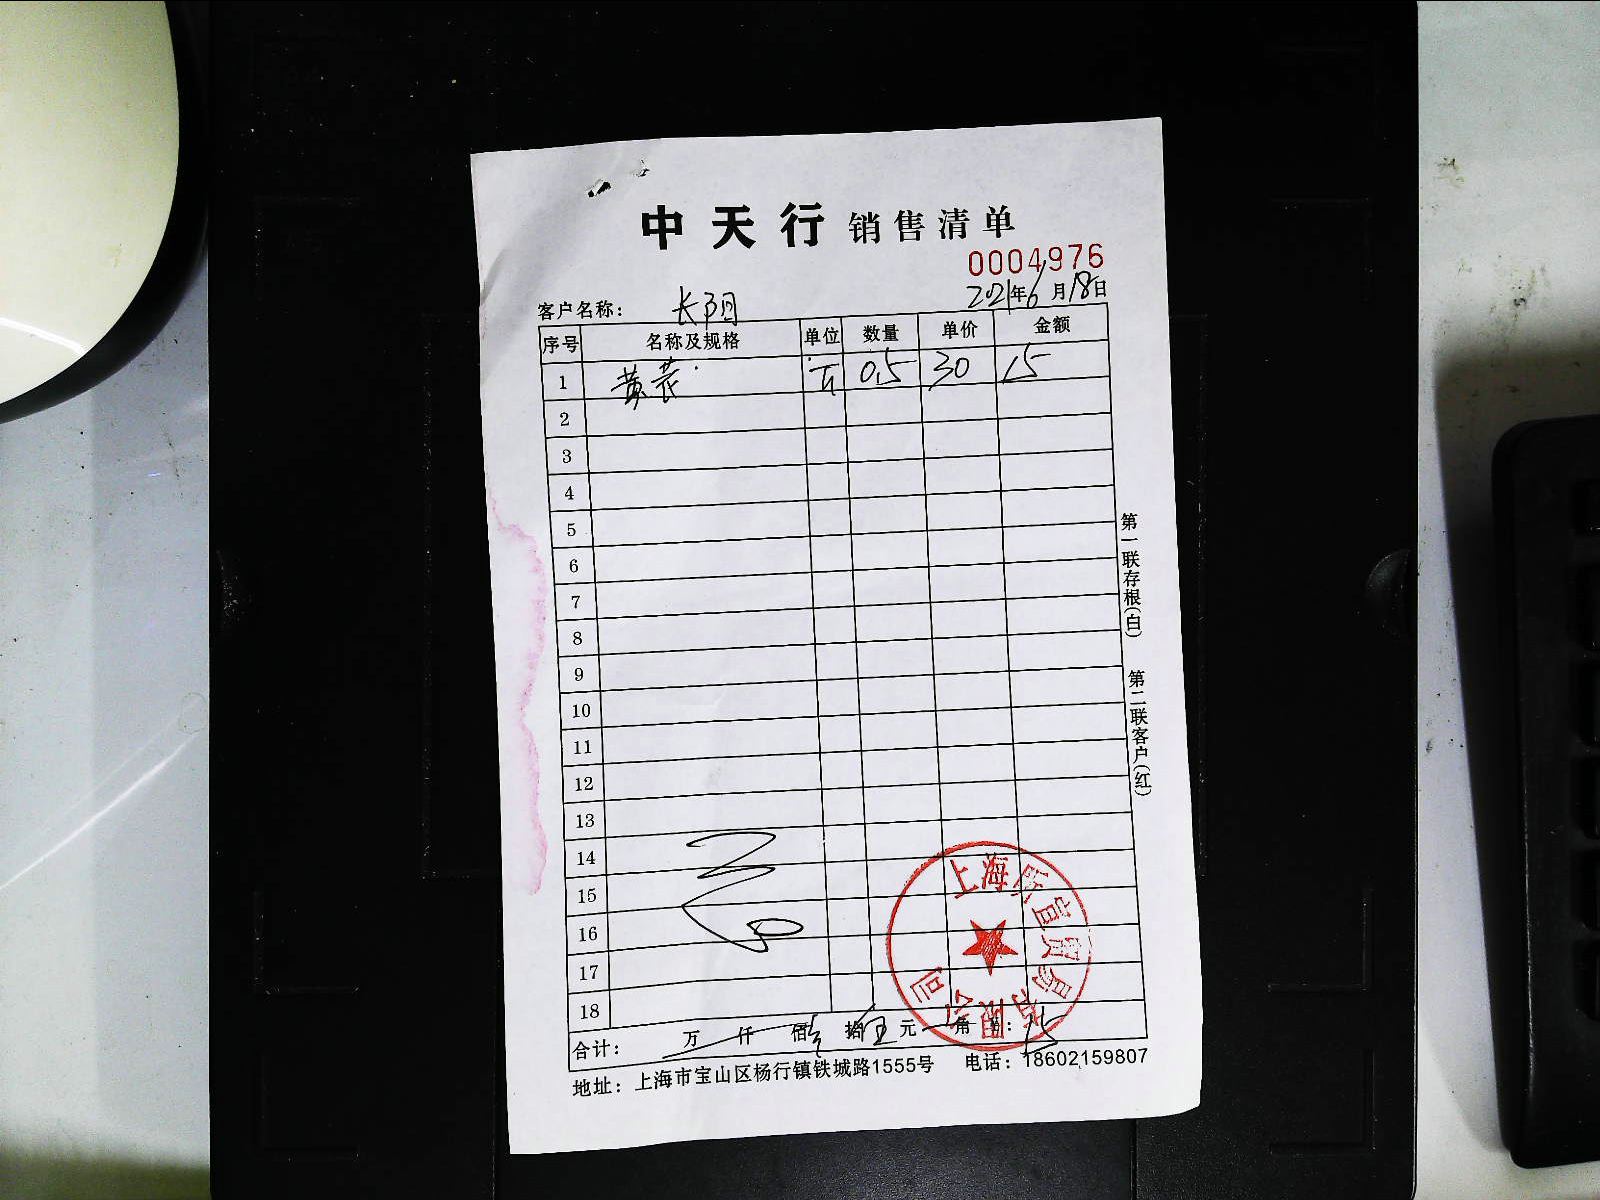 中天行 销售清单
0004976
客户名称： 长阳 2021年6月18日
序号 名称及规格 单位 数量 单价 金额
1 黄芪 斤 0.5 30 15
2
3
4
5
6
7
8
9
10
11
12
13
14
15
16
17
18
合计： 万 仟 佰 壹 拾 伍 元 角 15
地址：上海市宝山区杨行镇铁城路1555号 电话：18602159807
第一联存根(白) 第二联客户(红)
上海 贸易有限公司